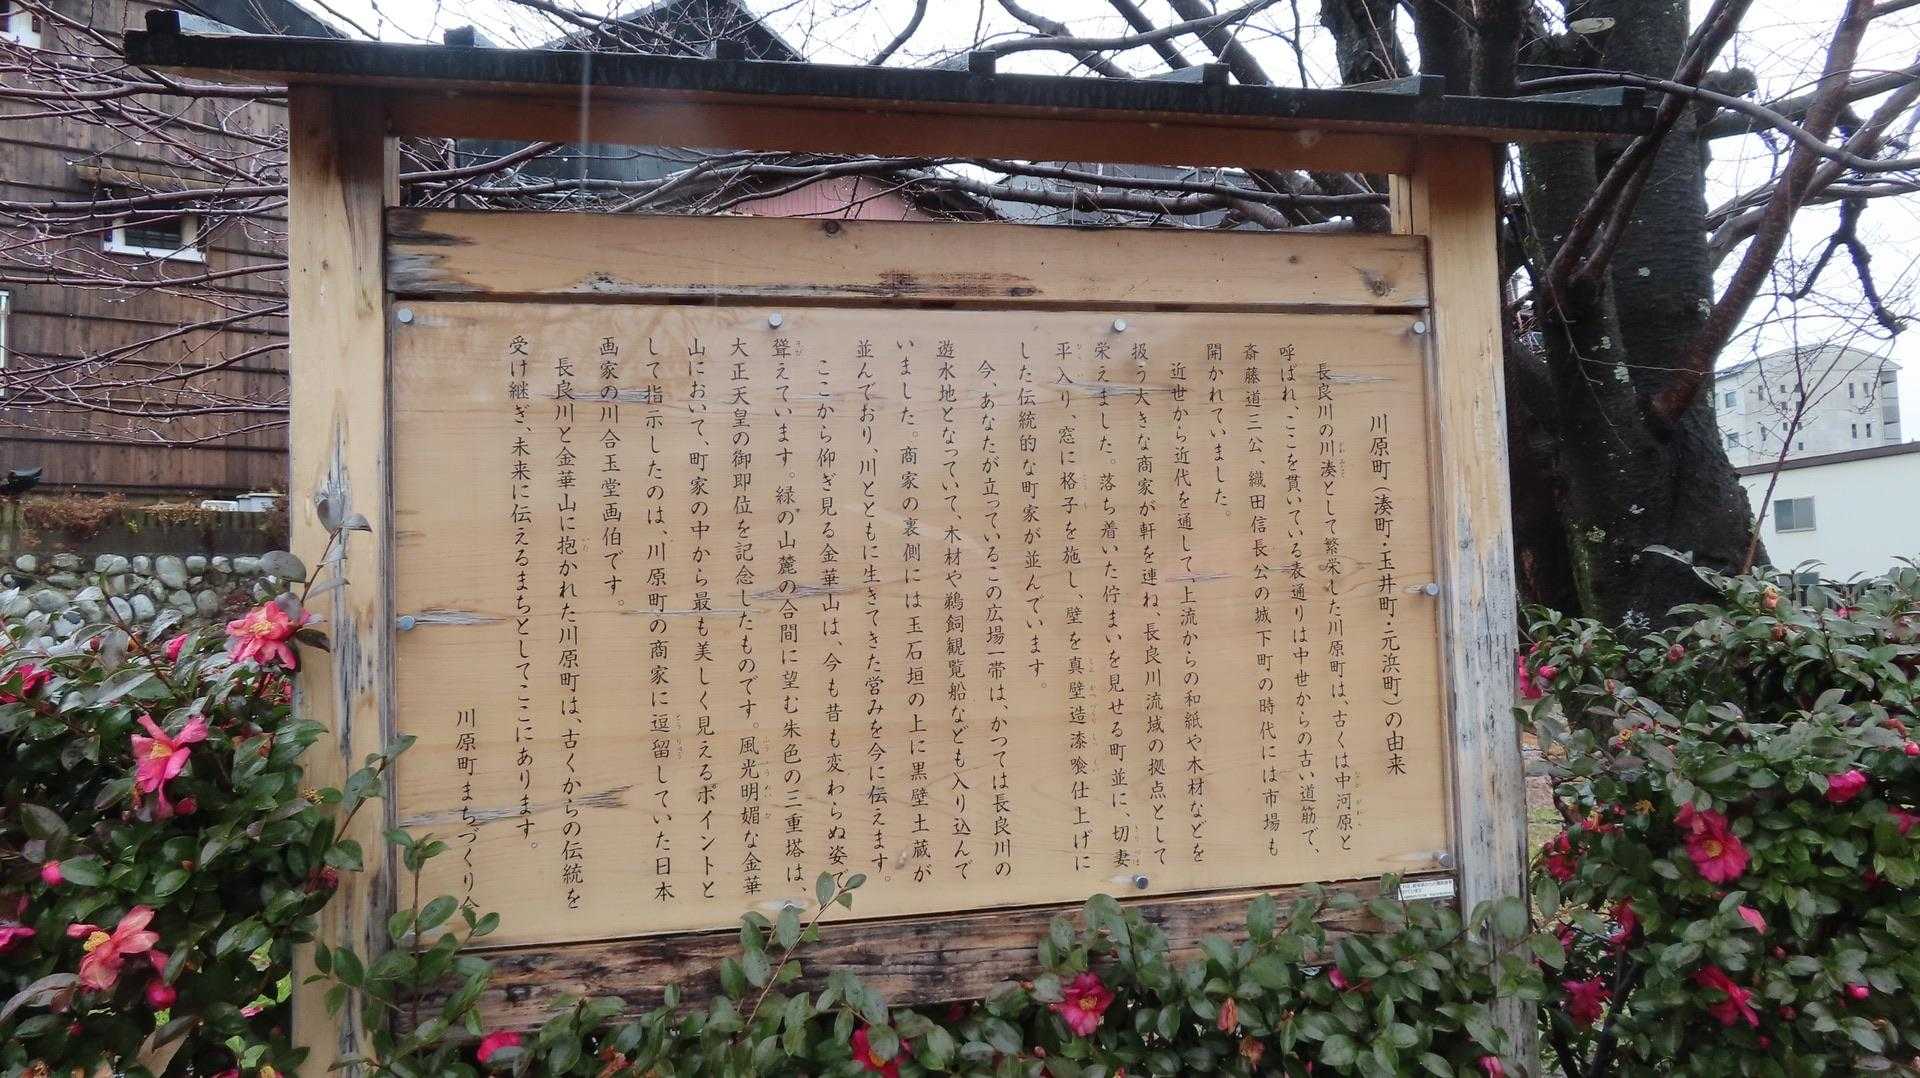 川原町(湊町・玉井町・元浜町)の由来
長良川の川湊として繁栄した川原町は、古くは中河原と
呼ばれ、ここを貫いている表通りは中世からの古い道筋で、
斎藤道三公、織田信長公の城下町の時代には市場も
開かれていました。
近世から近代を通して、上流からの和紙や木材などを
扱う大きな商家が軒を連ね、長良川流域の拠点として
栄えました。落ち着いた佇まいを見せる町並に、切妻
平入り、窓に格子を施し、壁を真壁造漆喰仕上げに
した伝統的な町家が並んでいます。
今、あなたが立っているこの広場一帯は、かつては長良川の
遊水地となっていて、木材や鵜飼観覧船なども入り込んで
いました。商家の裏側には玉石垣の上に黒壁土蔵が
並んでおり、川とともに生きてきた営みを今に伝えます。
ここから仰ぎ見る金華山は、今も昔も変わらぬ姿で
聳えています。緑の山麓の合間に望む朱色の三重塔は、
大正天皇の御即位を記念したものです。風光明媚な金華
山において、町家の中から最も美しく見えるポイントと
して指示したのは、川原町の商家に逗留していた日本
画家の川合玉堂画伯です。
長良川と金華山に抱かれた川原町は、古くからの伝統を
受け継ぎ、未来に伝えるまちとしてここにあります。
川原町まちづくり会